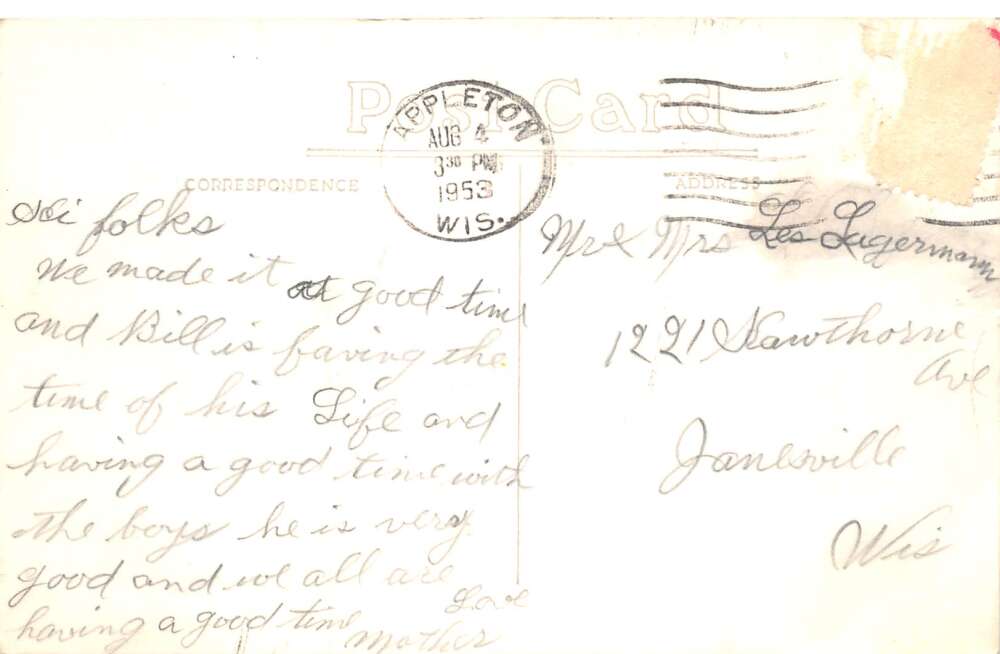 Post Card
APPLETON
AUG 4
3 30 PM
1953
WIS.
CORRESPONDENCE
ADDRESS
Hi folks
We made it at good time
and Bill is faving the
time of his Life and
having a good time with
the boys he is very
good and we all are
having a good time
Love
Mother
Mr & Mrs Les Lugermann
1221 Hawthorne
Ave
Janesville
Wis